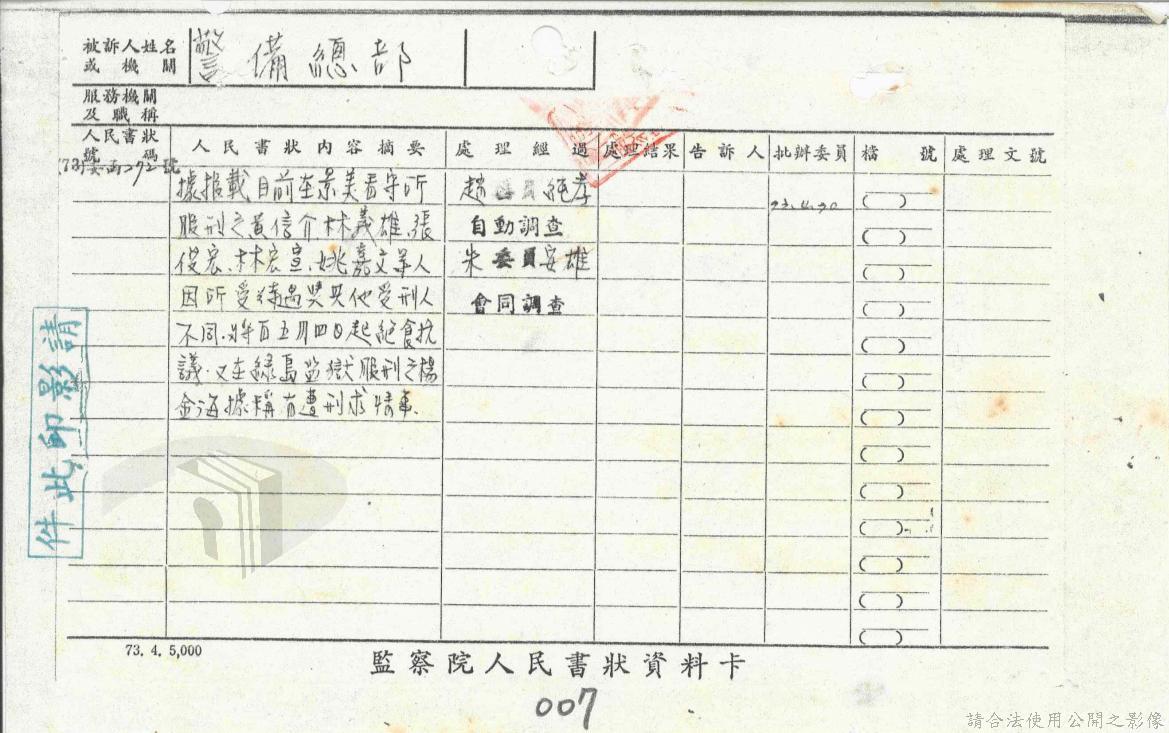 被訴人姓名
或機關
警備總部
服務機關
及職稱
人民書狀
號碼
人民書狀內容摘要
處理經過
處理結果
告訴人
批辦委員
檔號
處理文號
據報載目前在景美看守所
服刑之黃信介林義雄、張
俊宏、林宏宣、姚嘉文等人
因所受待遇與其他受刑人
不同、將自五月四日起絕食抗
議.又在綠島監獄服刑之楊
金海據稱有遭刑求情事.
趙委員純孝
自動調查
朱委員安雄
會同調查
73.4.30
請影印此件
73. 4. 5,000
監察院人民書狀資料卡
007
請合法使用公開之影像